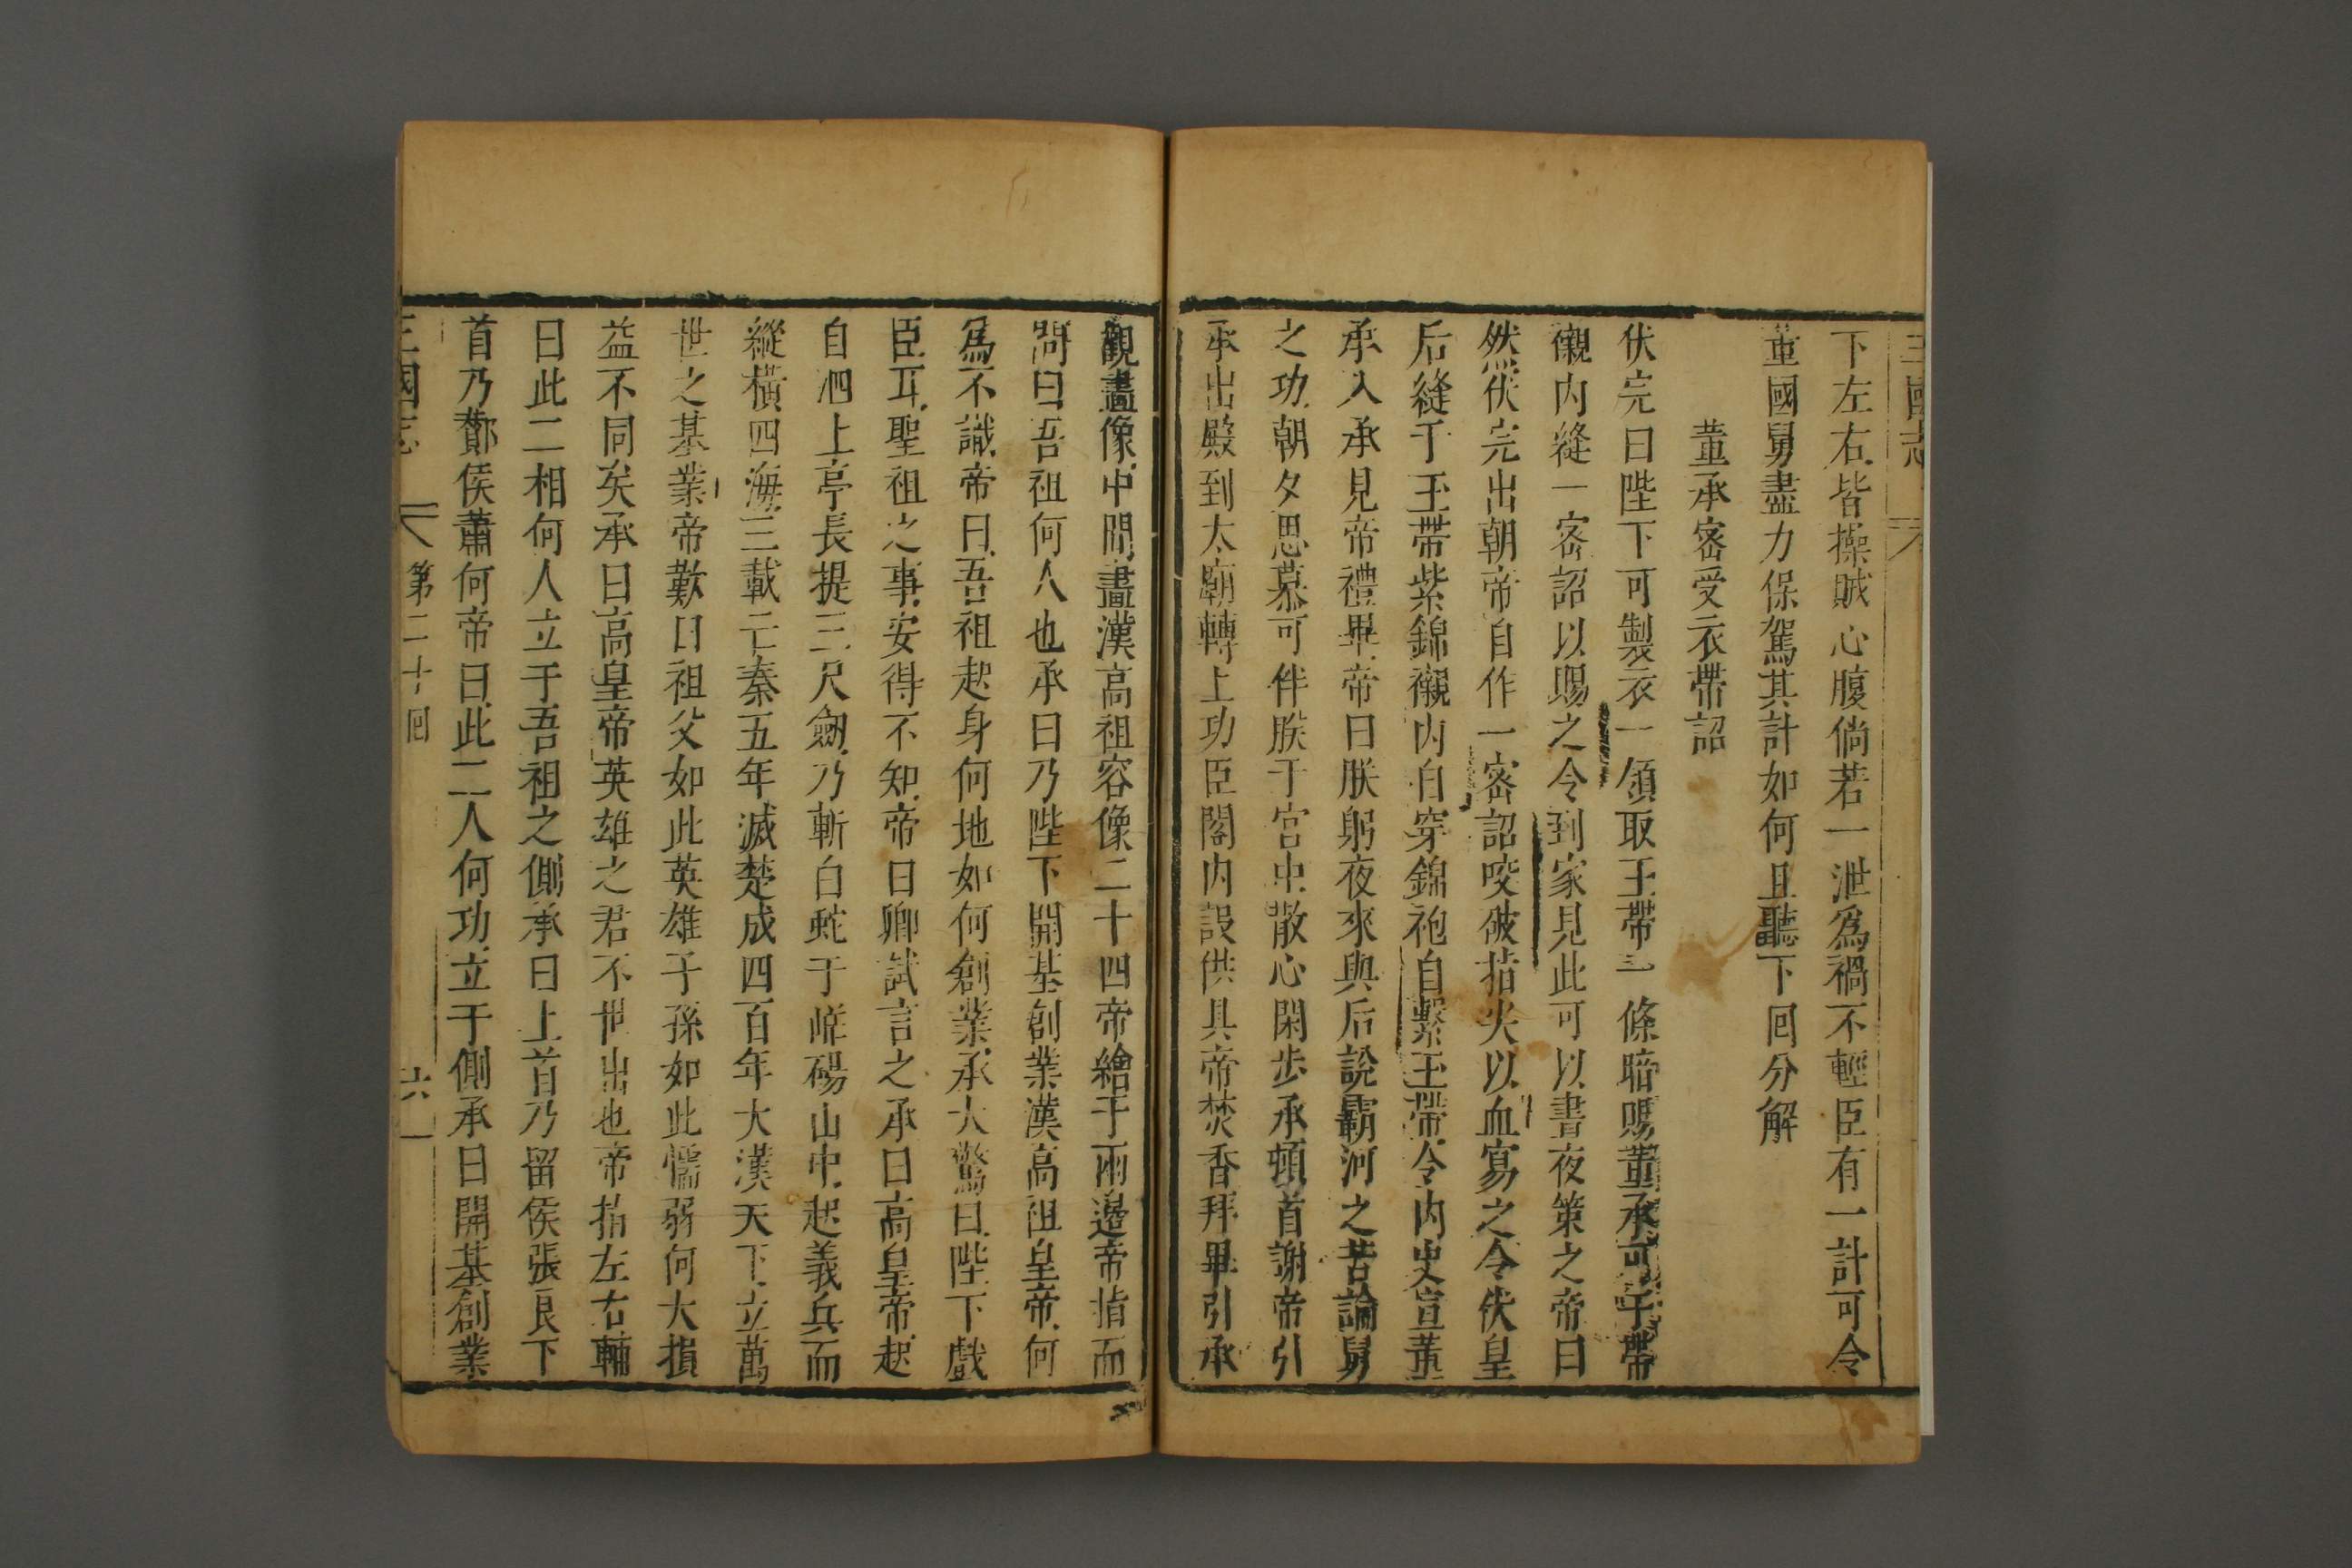 三國志
下左右皆操賊心腹倘若一泄爲禍不輕臣有一計可令
董國舅盡力保駕其計如何且聽下回分解
董承密受衣帶詔
伏完曰陛下可製衣一領取玉帶一條暗賜董承可于帶
襯内縫一密詔以賜之令到家見此可以晝夜策之帝曰
然伏完出朝帝自作一密詔咬破指尖以血寫之令伏皇
后縫于玉帶紫錦襯内自穿錦袍自繫玉帶令内史宣董
承入承見帝禮畢帝曰朕躬夜來與后說霸河之苦論舅
之功朝夕思慕可伴朕于宮中散心閑步承頓首謝帝引
承出殿到太廟轉上功臣閣内設供具帝焚香拜畢引承
觀畫像中間畫漢高祖容像二十四帝繪于兩邊帝指而
問曰吾祖何人也承曰乃陛下開基創業漢高祖皇帝何
爲不識帝曰吾祖起身何地如何創業承大驚曰陛下戲
臣耳聖祖之事安得不知帝曰卿試言之承曰高皇帝起
自泗上亭長提三尺劔乃斬白蛇于崄碭山中起義兵而
縱橫四海三載亡秦五年滅楚成四百年大漢天下立萬
世之基業帝歎曰祖父如此英雄子孫如此懦弱何大損
益不同矣承曰高皇帝英雄之君不世出也帝指左右輔
曰此二相何人立于吾祖之側承曰上首乃留侯張良下
首乃酇侯蕭何帝曰此二人何功立于側承曰開基創業
三國志 第二十回 六